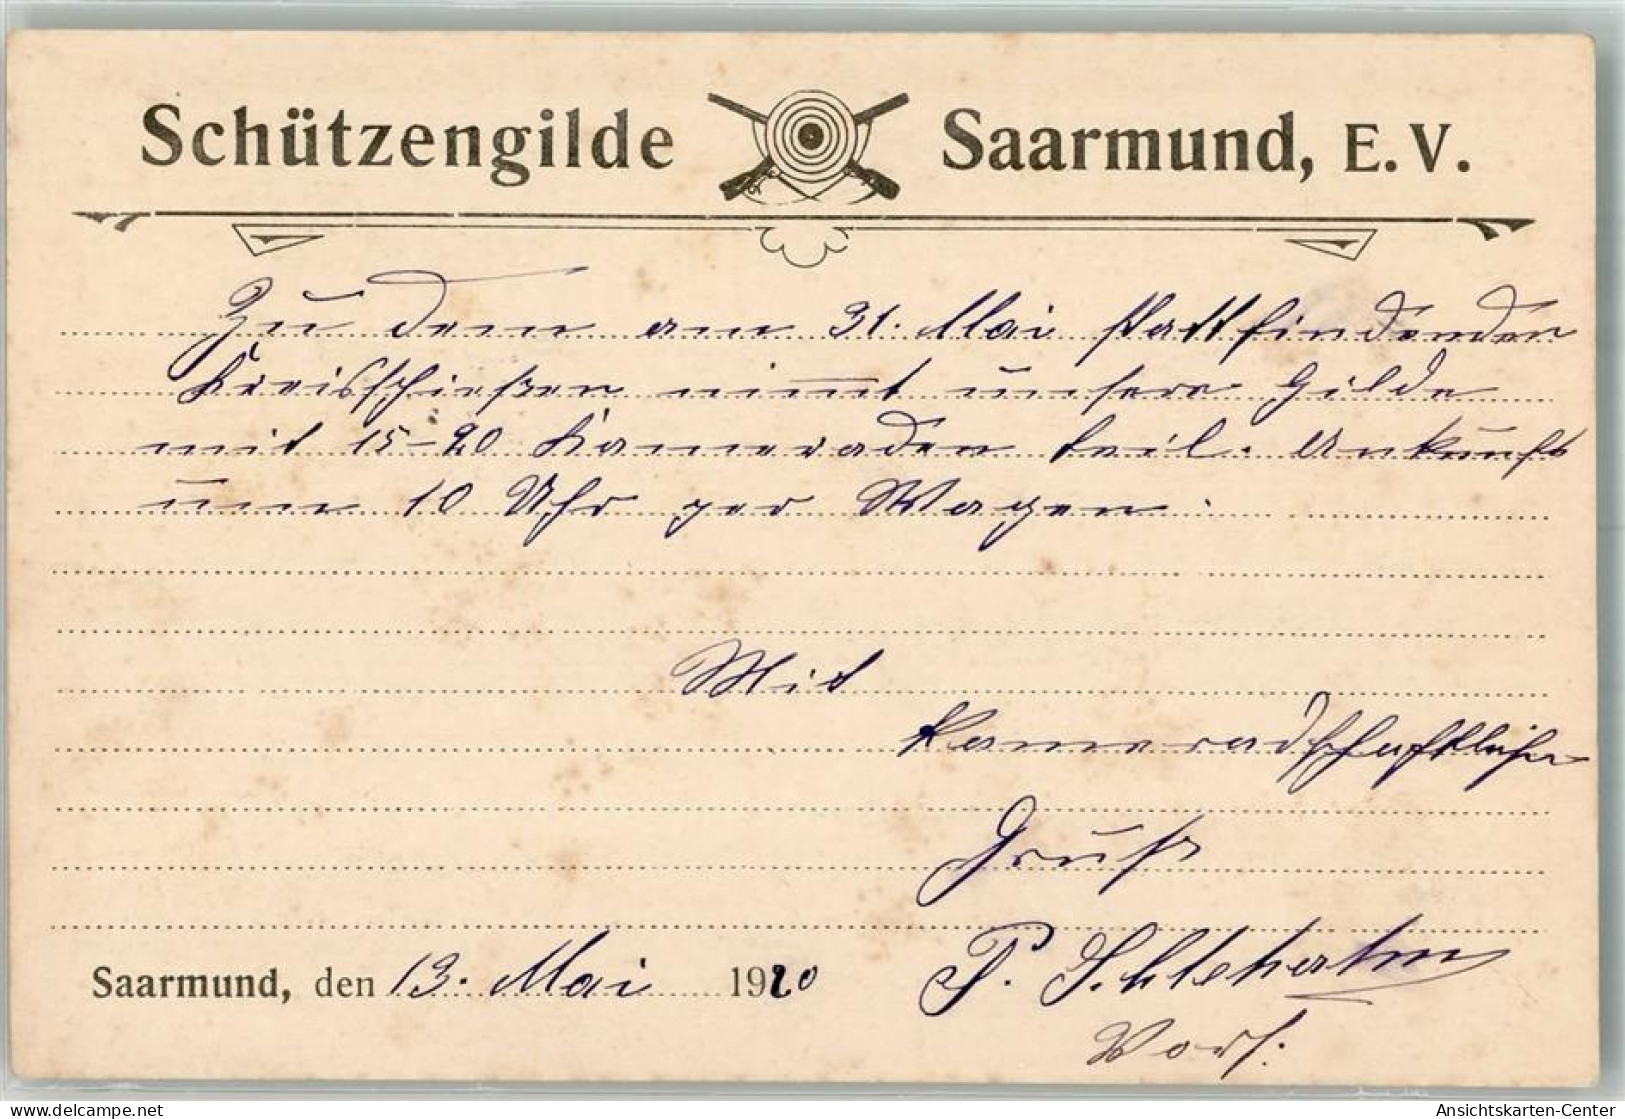 Schützengilde Saarmund, E.V.
Zu dem am 31. Mai stattfindenden
Kreisschießen nimmt unsere Gilde
mit 15-20 Kameraden teil. Ankunft
um 10 Uhr per Wagen.
Mit
Kameradschaftlichen
Gruß
Saarmund, den 13. Mai 1920
P.
Vors.
delcampe.net
Ansichtskarten-Center